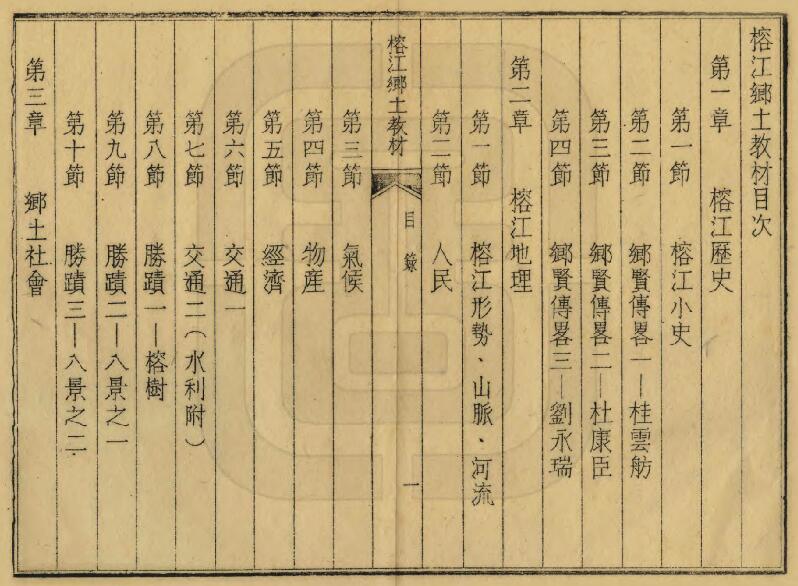 榕江鄉土教材目次
第一章 榕江歷史
第一節 榕江小史
第二節 鄉賢傳畧一—桂雲舫
第三節 鄉賢傳畧二—杜康臣
第四節 鄉賢傳畧三—劉永瑞
第二章 榕江地理
第一節 榕江形勢、山脈、河流
第二節 人民
榕江鄉土教材 目錄 一
第三節 氣候
第四節 物產
第五節 經濟
第六節 交通一
第七節 交通二（水利附）
第八節 勝蹟一—榕樹
第九節 勝蹟二—八景之一
第十節 勝蹟三—八景之二
第三章 鄉土社會